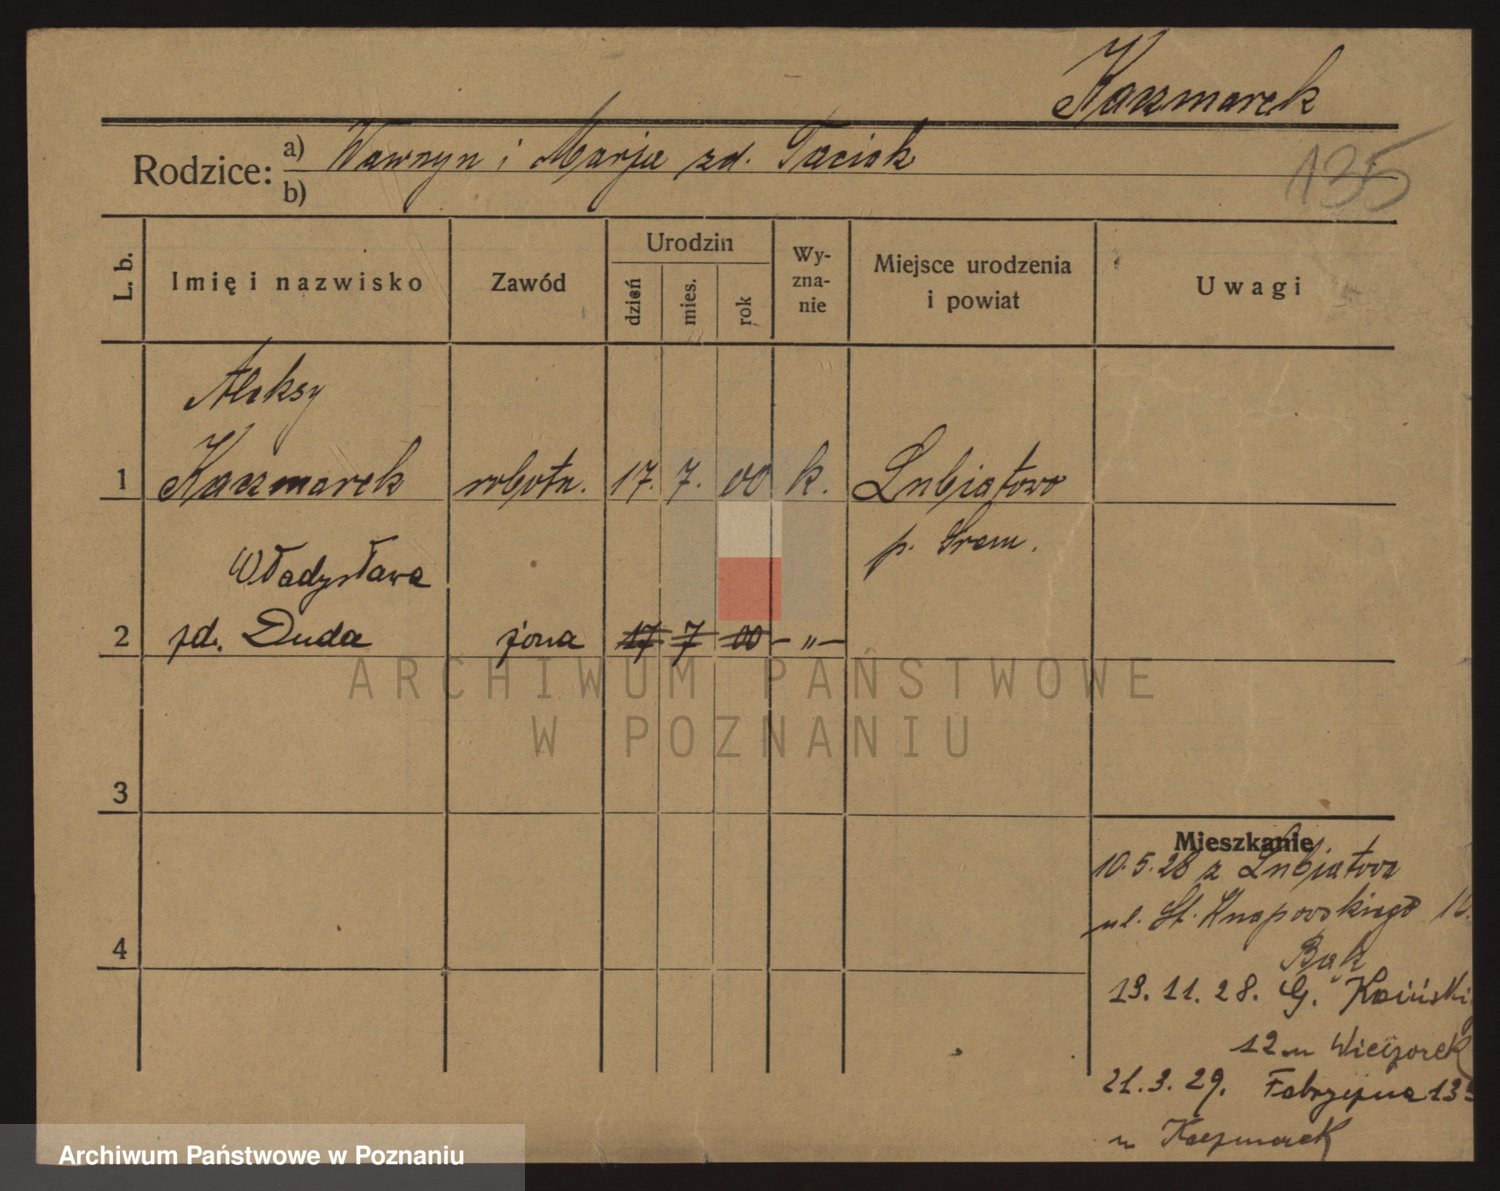 Kaczmarek
135
Rodzice: a) Wawrzyn i Marja zd. Taciak
b)
L. b.
Imię i nazwisko
Zawód
Urodzin
dzień
mies.
rok
Wy-
zna-
nie
Miejsce urodzenia
i powiat
Uwagi
Aleksy
1 Kaczmarek robotn. 17. 7. 00 k. Lubiatowo
p. Śrem.
Władysława
2 zd. Duda żona 17 7 00 – " –
3
4
Mieszkanie
10.5.28 z Lubiatowa
ul. St. Knapowskiego 10.
Bąk
13.11.28. G. Kosiński
12 m Wieczorek
21.3.29. Fabryczna 135
m Kaczmarek
ARCHIWUM PAŃSTWOWE
W POZNANIU
Archiwum Państwowe w Poznaniu